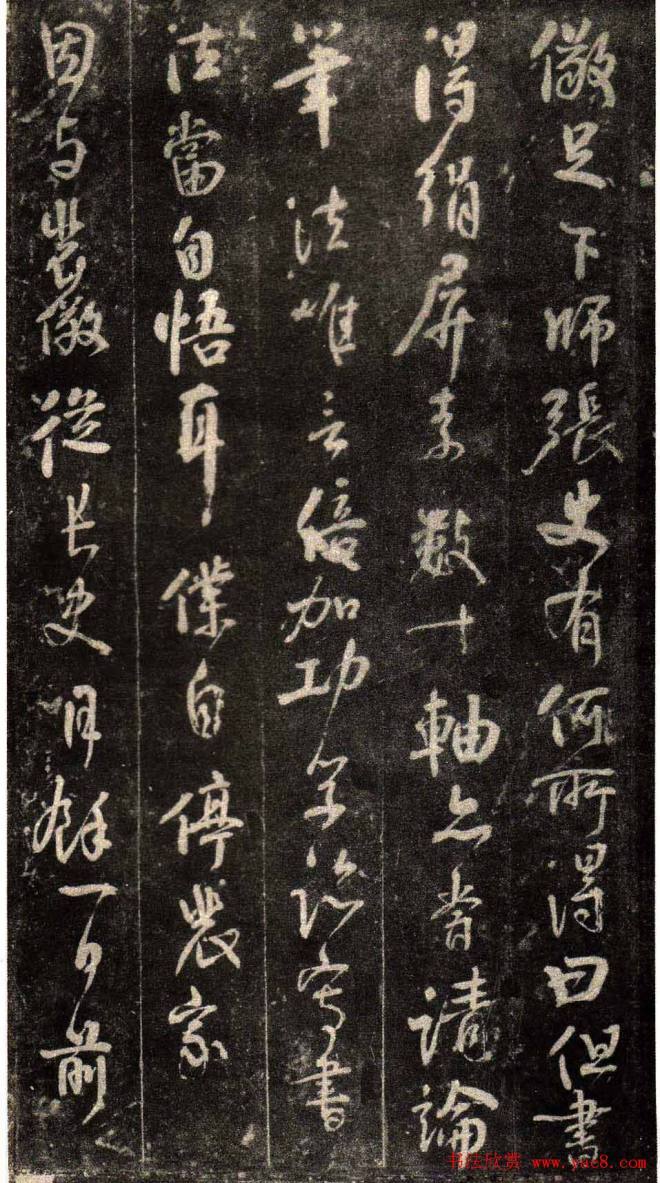 儆足下師張史有何所得曰但書
得絹屏素數十軸亦甞請論
筆法唯言倍加功學臨寫書
法當自悟耳僕自停裴家
因与裴儆從長史月餘一日前
书法欣赏 www.yac8.com